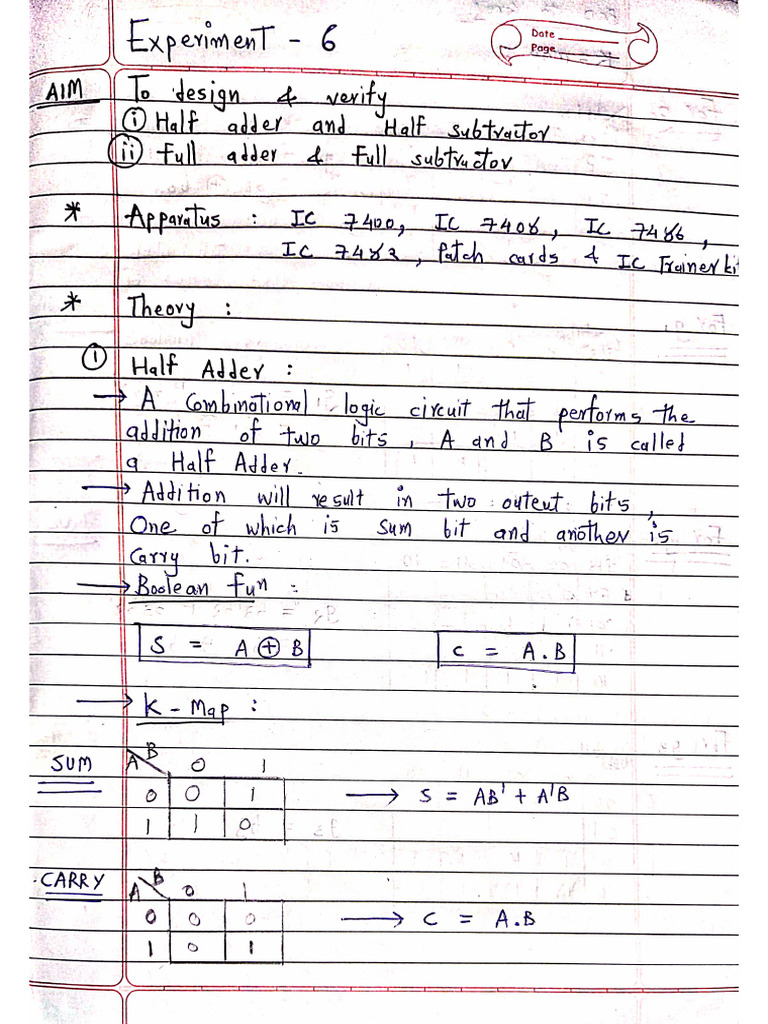 Experiment - 6
Date
Page
AIM To design & verify
(i) Half adder and Half subtractor
(ii) Full adder & Full subtractor
* Apparatus : IC 7400, IC 7408, IC 7486,
IC 7483, Patch cards & IC Trainer kit
* Theory :
(1) Half Adder :
→ A Combinational logic circuit that performs the
addition of two bits, A and B is called
a Half Adder.
→ Addition will result in two output bits,
One of which is sum bit and another is
Carry bit.
→ Boolean fun :
S = A ⊕ B C = A.B
→ K - Map :
SUM A B 0 1
0 0 1 → S = AB' + A'B
1 1 0
CARRY A B 0 1
0 0 0 → C = A.B
1 0 1